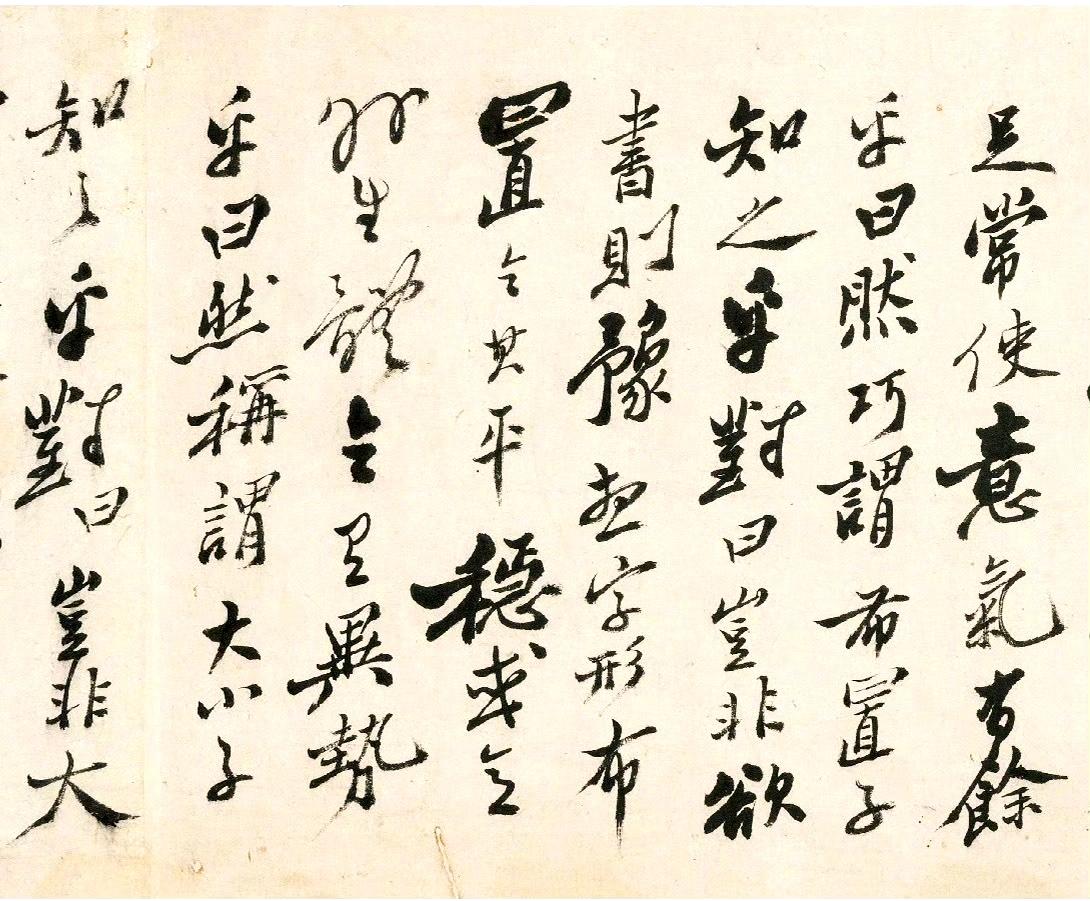 足常使意氣有餘
乎曰然巧謂布置子
知之乎對曰豈非欲
書則豫想字形布
置令其平穩或意
外生體令有異勢
乎曰然稱謂大小子
知之乎對曰豈非大